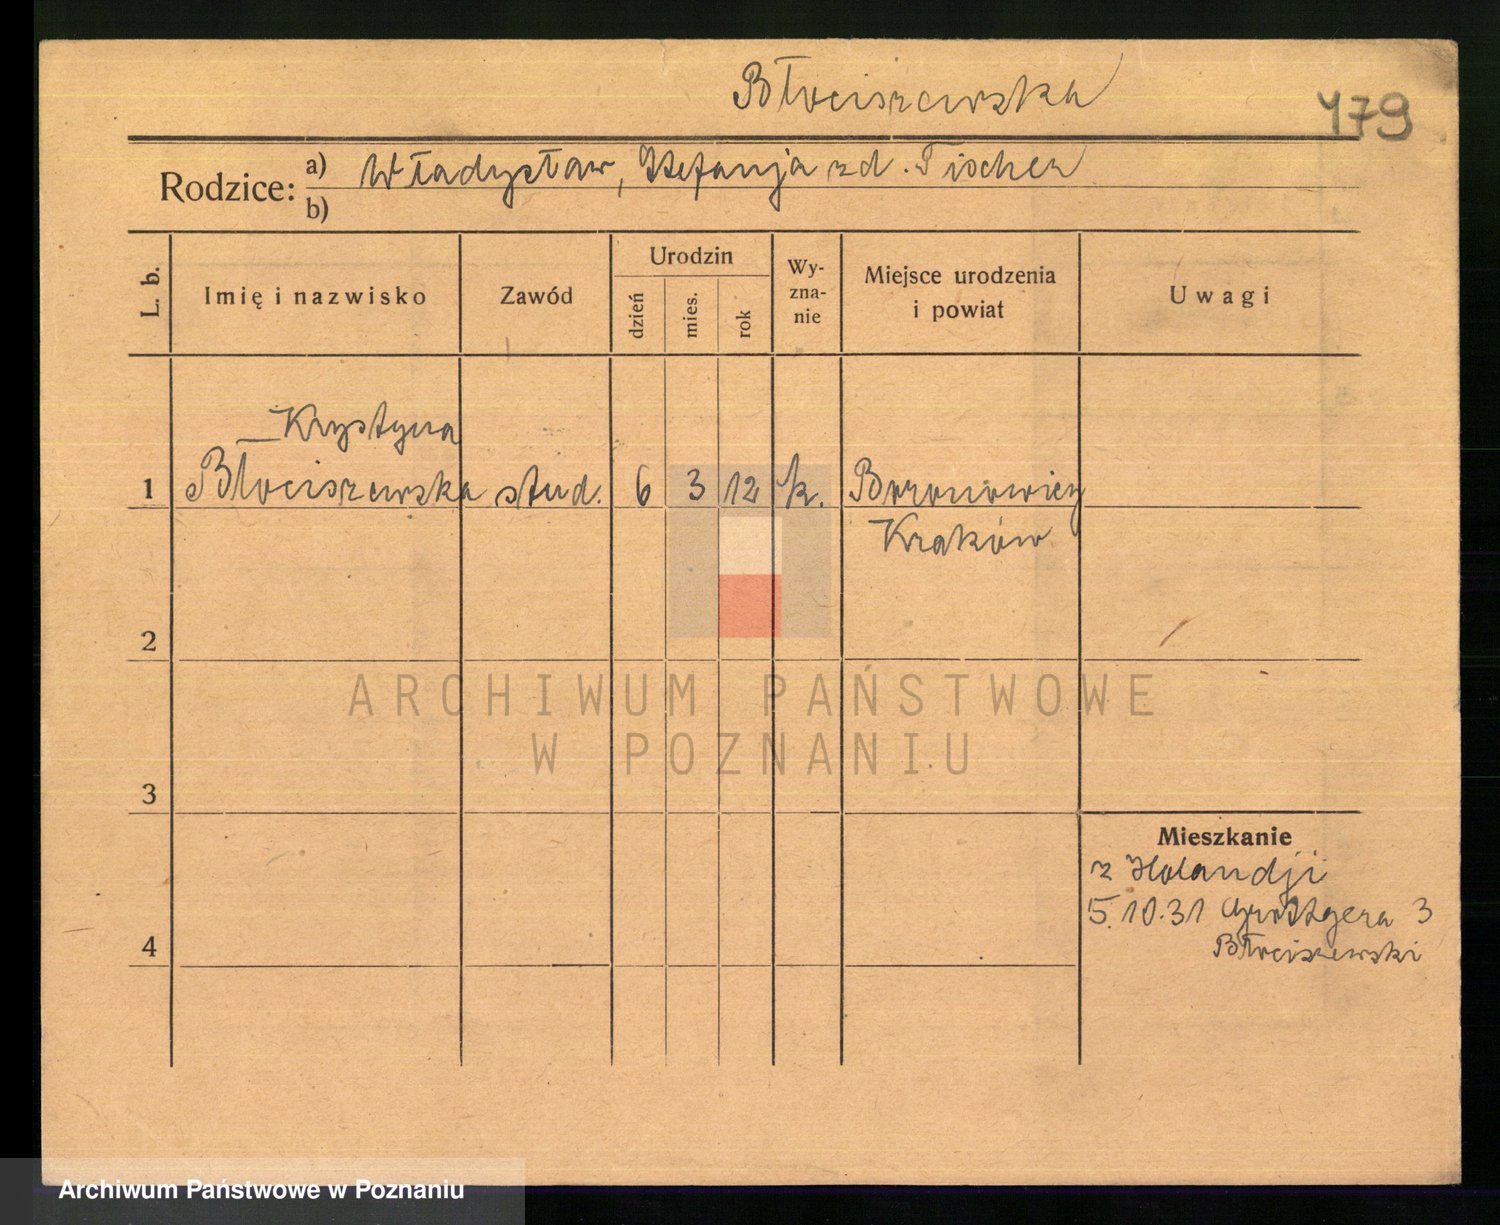 Błociszewska
179
Rodzice: a) Władysław, Stefanja zd. Fischer
b)
L. b.
Imię i nazwisko
Zawód
Urodzin
dzień
mies.
rok
Wy-
zna-
nie
Miejsce urodzenia
i powiat
Uwagi
Krystyna
1 Błociszewska stud. 6 3 12 k.
Kraków
2
ARCHIWUM PAŃSTWOWE
W POZNANIU
3
Mieszkanie
z Holandji
5.10.31 Grottgera 3
Błociszewski
4
Archiwum Państwowe w Poznaniu